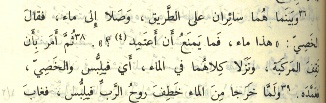 ٣٦وَبَيْنَمَا هُمَا سَائِرَانِ عَلَى الطَّرِيقِ، وَصَلَا إِلَى مَاءٍ، فَقَالَ
الْخَصِيُّ: «هَذَا مَاءٌ، فَمَا يَمْنَعُ أَنْ أَعْتَمِدَ (٤) ؟». ٣٨ثُمَّ أَمَرَ بِأَنْ
تَقِفَ الْمَرْكَبَةُ، وَنَزَلَا كِلَاهُمَا فِي الْمَاءِ، أَيْ فِيلِبُّسُ وَالْخَصِيُّ،
فَعَمَّدَهُ. ٣٩وَلَمَّا خَرَجَا مِنَ الْمَاءِ خَطِفَ رُوحُ الرَّبِّ فِيلِبُّسَ، فَغَابَ